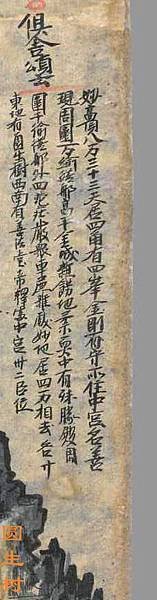 俱舍頌云
妙高頂八万三十三天居四角有四峯金剛手所住中宮名善
見周圍万踰繕那高一半金城雜飾地柔軟中有殊勝殿周
圍千踰繕那外四苑莊嚴衆車麁雜喜妙池居四方相去各廿
東北有圓生樹西南有善法堂帝釋當中定卅二臣位
圓生树